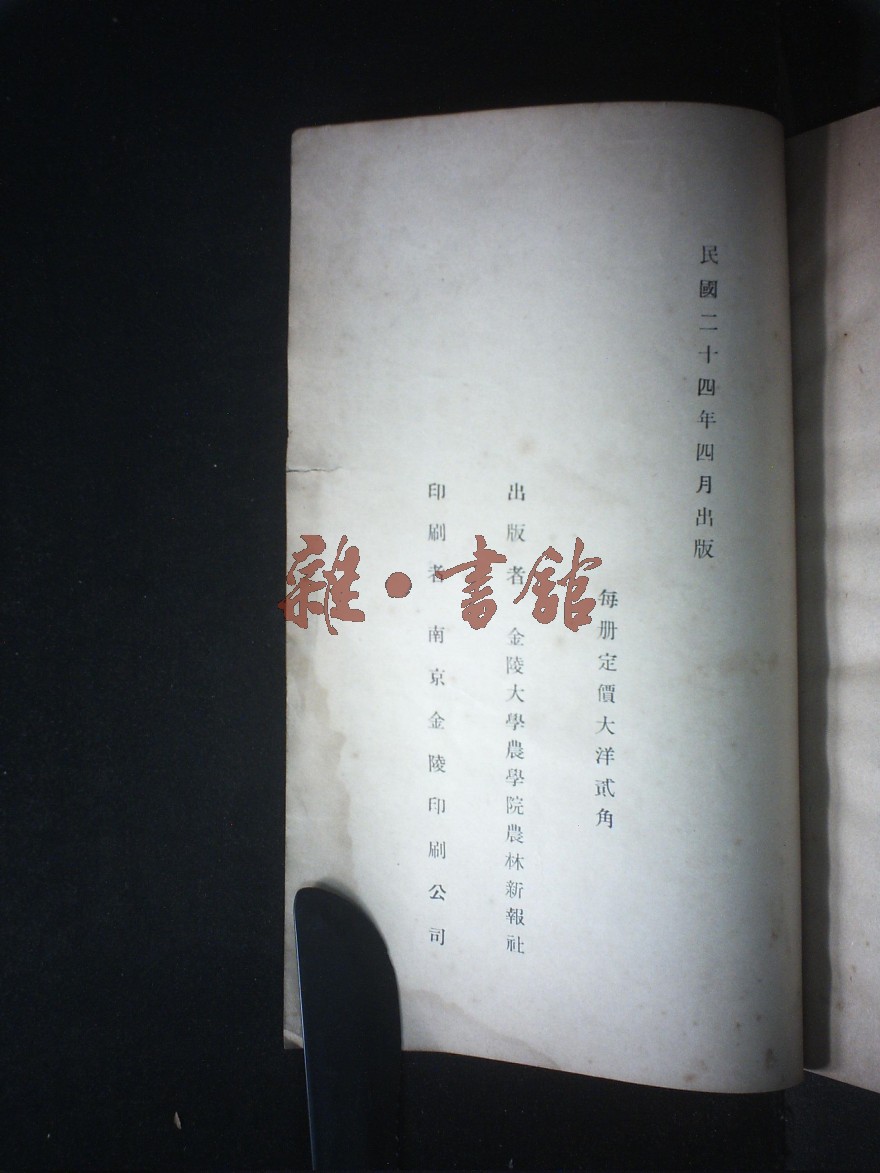 民國二十四年四月出版
每册定價大洋貳角
出版者 金陵大學農學院農林新報社
印刷者 南京金陵印刷公司
雜·書館